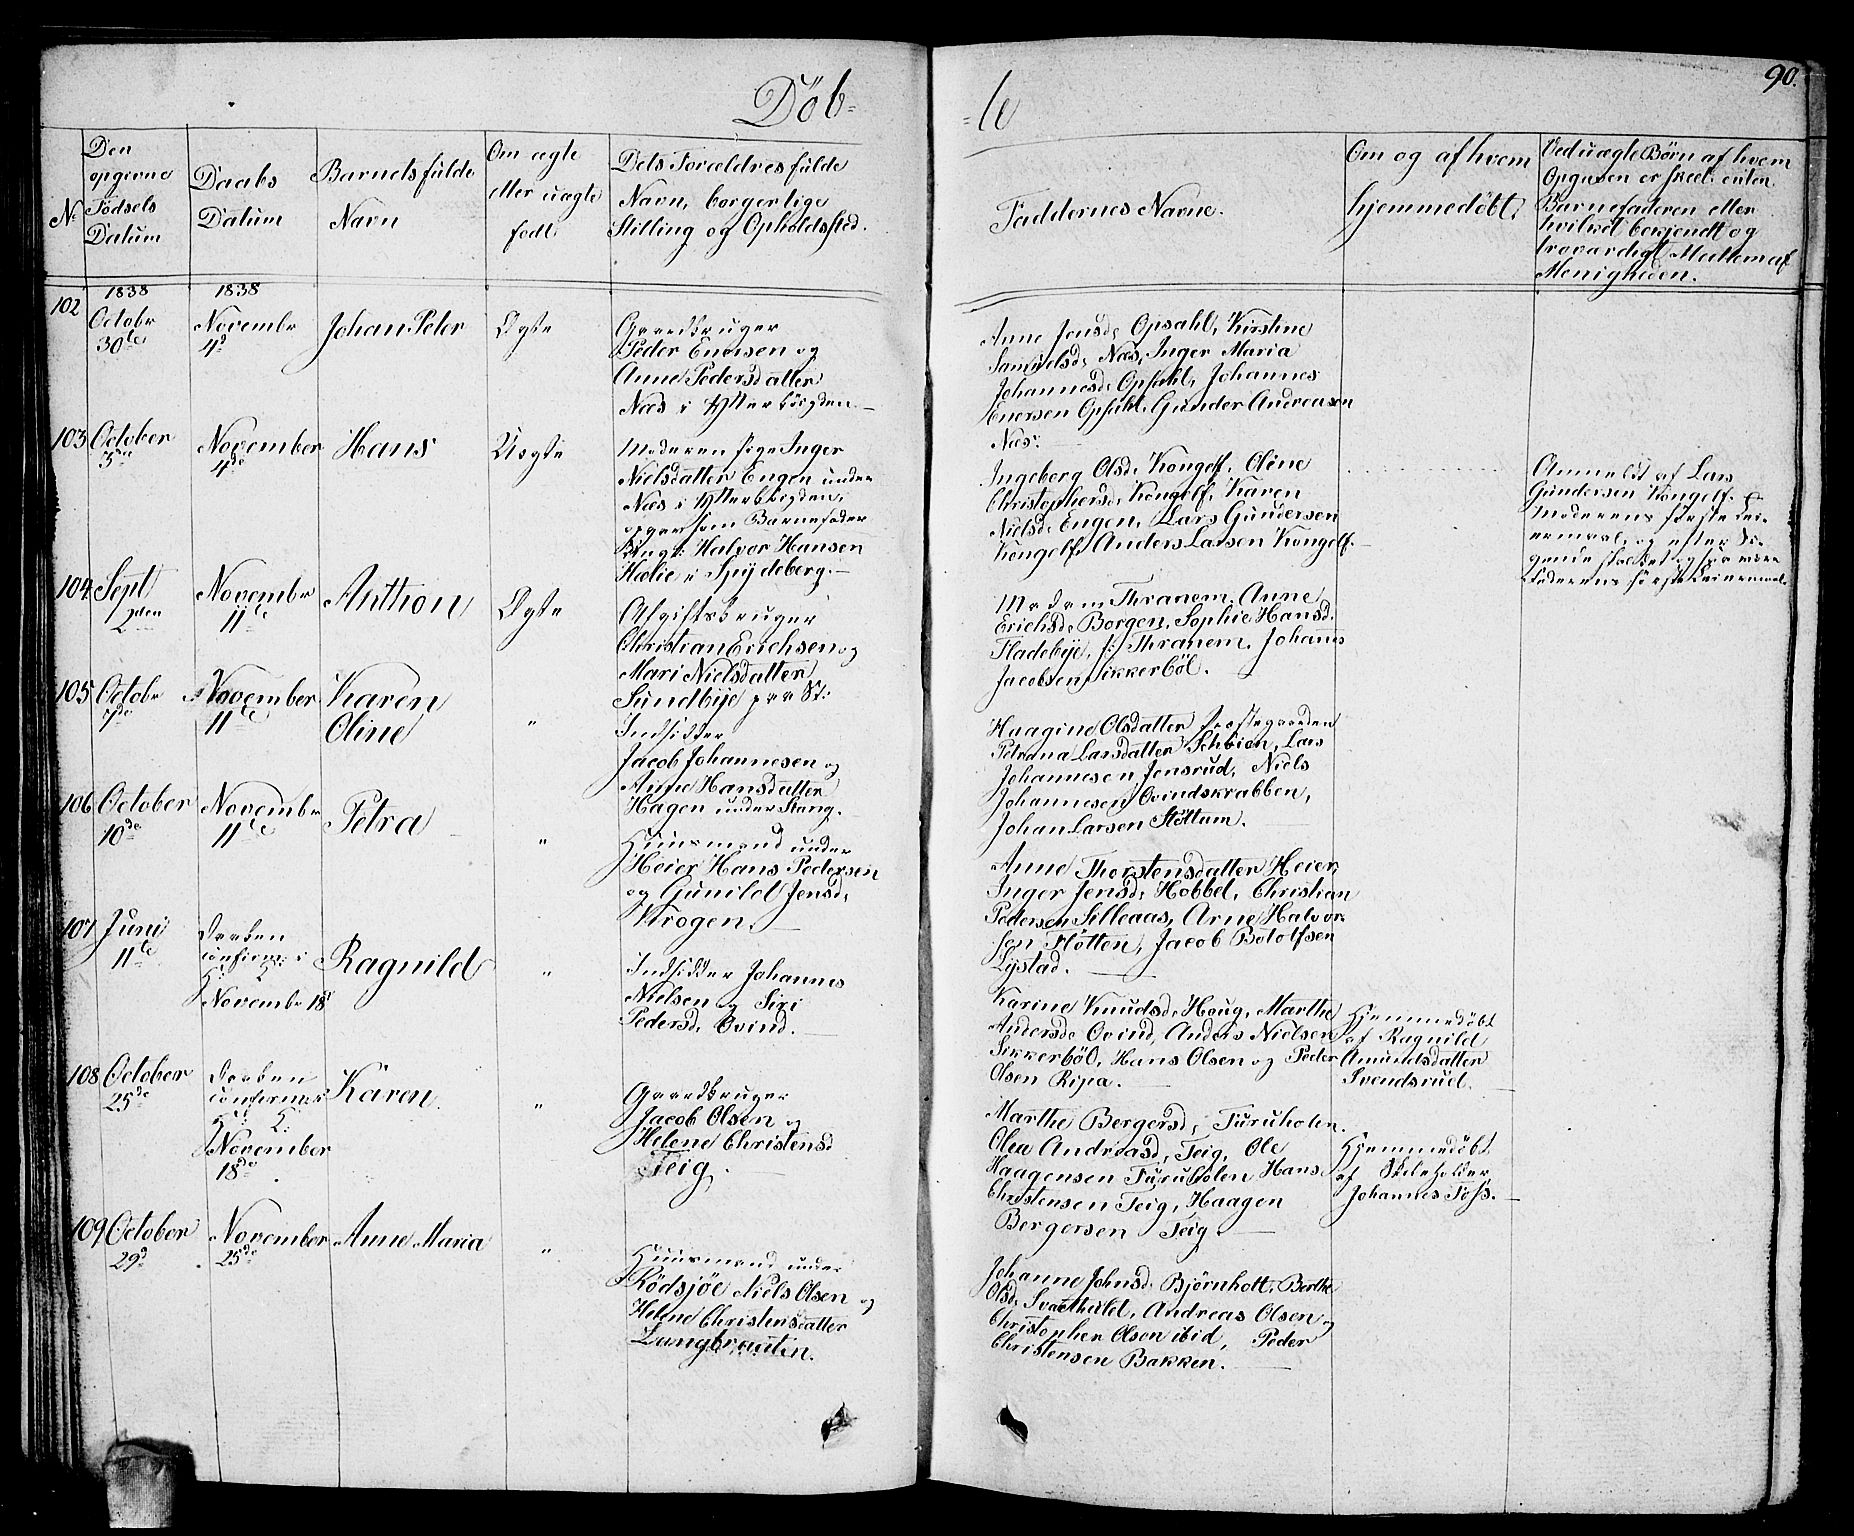 90.
Döb-
-te
No
Den
opgivne
Födsels
Datum
Daabs
Datum
Barnets fulde
Navn
Om ægte
eller uægte
født.
Dets Forældres fulde
Navn, borgerlige
Stilling og Opholdssted.
Faddernes Navne.
Om og af hvem
hjemmedöbt.
Ved uægte Børn af hvem
Opgiven er skeet enten
Barnefaderen eller
hvilket bekjendt og
troværdigt Medlem af
Menigheden.
102
1838
Octobr
30te
1838
Novembr
4d
Johan Peter
Ægte
Gaardbruger
Peder Enersen og
Anne Pedersdatter
Næs i Ytterbögden.
Anne Jensd. Opsahl, Kirstine
Samuelsd. Næs, Inger Maria
Johannesd. Opsahl, Johannes
Enersen Opsahl, Gunder Andreasen
Næs.
103
October
3de
November
4de
Hans
Uægte
Moderen Pige Inger
Nielsdatter Engen under
Næs i Ytterbögden,
opger som Barnefader
Ungk: Halvor Hansen
Hælie i Spydeberg.
Ingeborg Olsd. Kongelf, Oline
Christophersd. Kongelf, Karen
Nielsd. Engen, Lars Gundersen
Kongelf, Anders Larsen Kongelf.
Anmeldt af Lars
Gundersen Kongelf. Er
Moderens förste Lei-
ermaal, og efter Si-
gende skal det ogsaa være
Faderens förste Leiermaal.
104
Sept
2den
Novembr
11te
Anthon
Ægte
Afgiftsbruger
Christian Erichsen og
Mari Nielsdatter
Sundbye paa St:
Madam Thranem, Anne
Erichsd. Borgen, Sophie Hansd.
Fladebye, P: Thranem, Johannes
Jacobsen Sikkerböl.
105
Octobr
7de
November
11te
Karen
Oline
"
Indsidder
Jacob Johannesen og
Anne Hansdatter
Hagen under Stang.
Haagine Olsdatter Præstegaarden
Petrana Larsdatter Schöien, Lars
Johannesen Jensrud, Niels
Johannesen Ovindskrabben,
Johan Larsen Stöttum.
106
October
10de
Novembr
11te
Petra
"
Huusmand under
Heier Hans Pedersen
og Gunild Jensd.
Krogen.
Anne Thorstensdatter Heier,
Inger Jensd. Hobbel, Christian
Pedersen Silleaas, Arne Halvor-
sen Fløtten, Jacob Bolotfsen
Lystad.
107
Juni
11te
Daaben
confirm: i
H: K:
Novembr 18
Ragnild
"
Indsidder Johannes
Nielsen og Siri
Pedersd. Ovind.
Karine Knudsd. Houg, Marthe
Andersd. Ovind, Anders Nielsen
Sikkerböl, Hans Olsen og Peder
Olsen Ripa.
Hjemmedöbt
af Ragnild
Amundsdatter
Svendsrud.
108
October
25de
Daaben
confirmer
H: K:
November
18de
Karen
"
Gaardbruger
Jacob Olsen og
Helene Christensd
Teig.
Marthe Bergersd, Furuholen.
Olea Andreasd, Teig, Ole
Haagensen Furuholen Hans
Christensen Teig, Haagen
Bergersen Teig
Hjemmedöbt
af Skoleholder
Johannes Foss.
109
October
29d
November
25de
Anne Maria
"
Huusmand under
Rödsjöe Niels Olsen og
Helene Christensdatter
Langbrauten.
Johanne Johnsd. Bjørnholt, Berthe
Olsd. Svarthuld, Andreas Olsen og
Christopher Olsen ibid, Peder
Christensen Bakken.